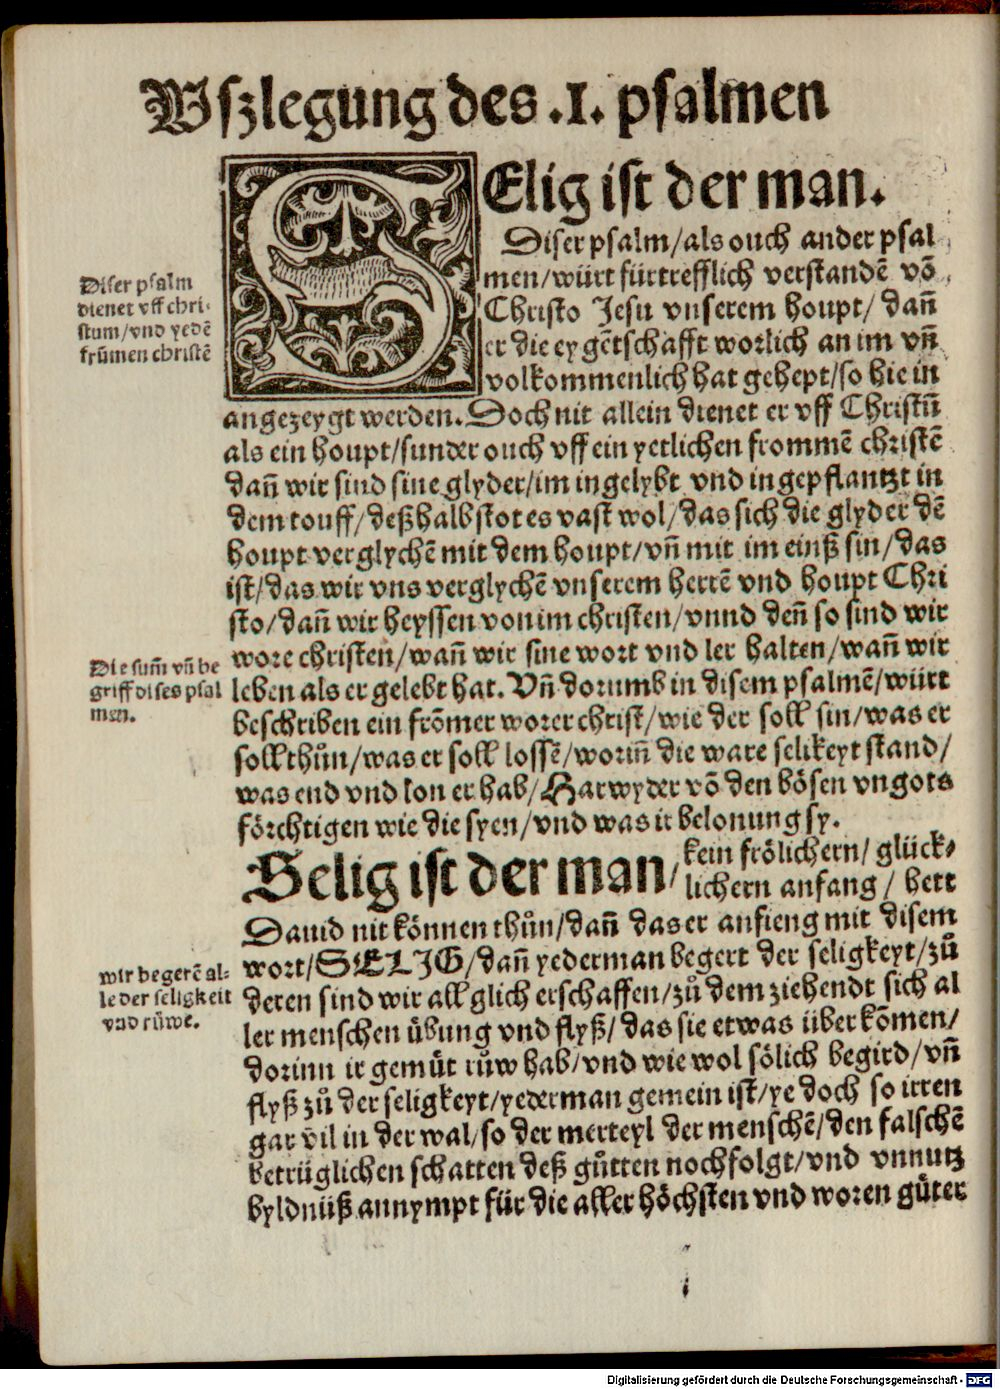 Vſzlegung des .I. pſalmen
SElig iſt der man.
Diſer pſalm/als ouch ander pſal
men/würt fürtrefflich verſtandē vō
Chriſto Jeſu vnſerem houpt/ dañ
er die eygētſchafft worlich an im vñ
volkommenlich hat gehept/ſo hie in
angezeygt werden. Doch nit allein dienet er vff Chriſtū
als ein houpt/ſunder ouch vff ein yetlichen frommē chriſtē
dañ wir ſind ſine glyder/im ingelybt vnd ingepflantzt in
dem touff/deßhalb ſtot es vaſt wol/das ſich die glyder dē
houpt verglychē mit dem houpt/vñ mit im einß ſin/das
iſt/das wir vns verglychē vnſerem herrē vnd houpt Chri
ſto/dañ wir heyſſen von im chriſten/vnnd deñ ſo ſind wir
wore chriſten/wañ wir ſine wort vnd ler halten/wañ wir
leben als er gelebt hat. Vñ dorumb in diſem pſalmē/würt
beſchriben ein frōmer worer chriſt/wie der ſoll ſin/was er
ſoll thůn/was er ſoll loſſē/woriñ die ware ſelikeyt ſtand/
was end vnd lon er hab/Harwyder vō den böſen vngots
förchtigen wie die ſyen/vnd was ir belonung ſy.
Selig iſt der man/ kein frölichern/ glück-
lichern anfang/ hett
Dauid nit können thůn/dañ das er anfieng mit diſem
wort/SELIG/dañ yederman begert der ſeligkeyt/zů
deren ſind wir all glich erſchaffen/zů dem ziehendt ſich al
ler menſchen übung vnd flyß/das ſie etwas überkōmen/
dorinn ir gemüt růw hab/vnd wie wol ſölich begird/vñ
flyß zů der ſeligkeyt/yederman gemein iſt/ye doch ſo irren
gar vil in der wal/ſo der merteyl der menſchē/den falſchē
betrüglichen ſchatten deß gůtten nochfolgt/vnd vnnutz
byldnüß annympt für die aller höchſten vnd woren güter
Diſer pſalm
dienet vff chri-
ſtum/vnd yedē
frūmen chriſtē
Die ſum̄ vñ be
griff diſes pſal
men.
wir begerē al-
le der ſeligkeit
vnd růwe.
Digitalisierung gefördert durch die Deutsche Forschungsgemeinschaft - DFG